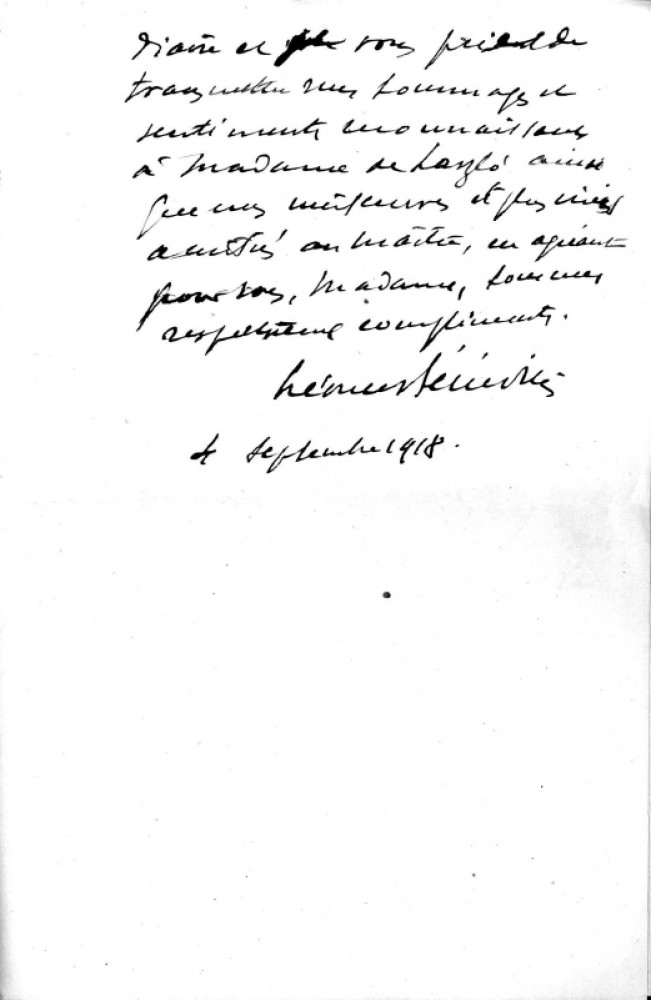 et vous prie de
transmettre mes hommages et
sentiments reconnaissants
à Madame de László ainsi
que mes meilleures et plus vives
amitiés au Maître, en agréant
pour vous, Madame, tous mes
respectueux compliments.
Léonce Bénédite
4 septembre 1918.